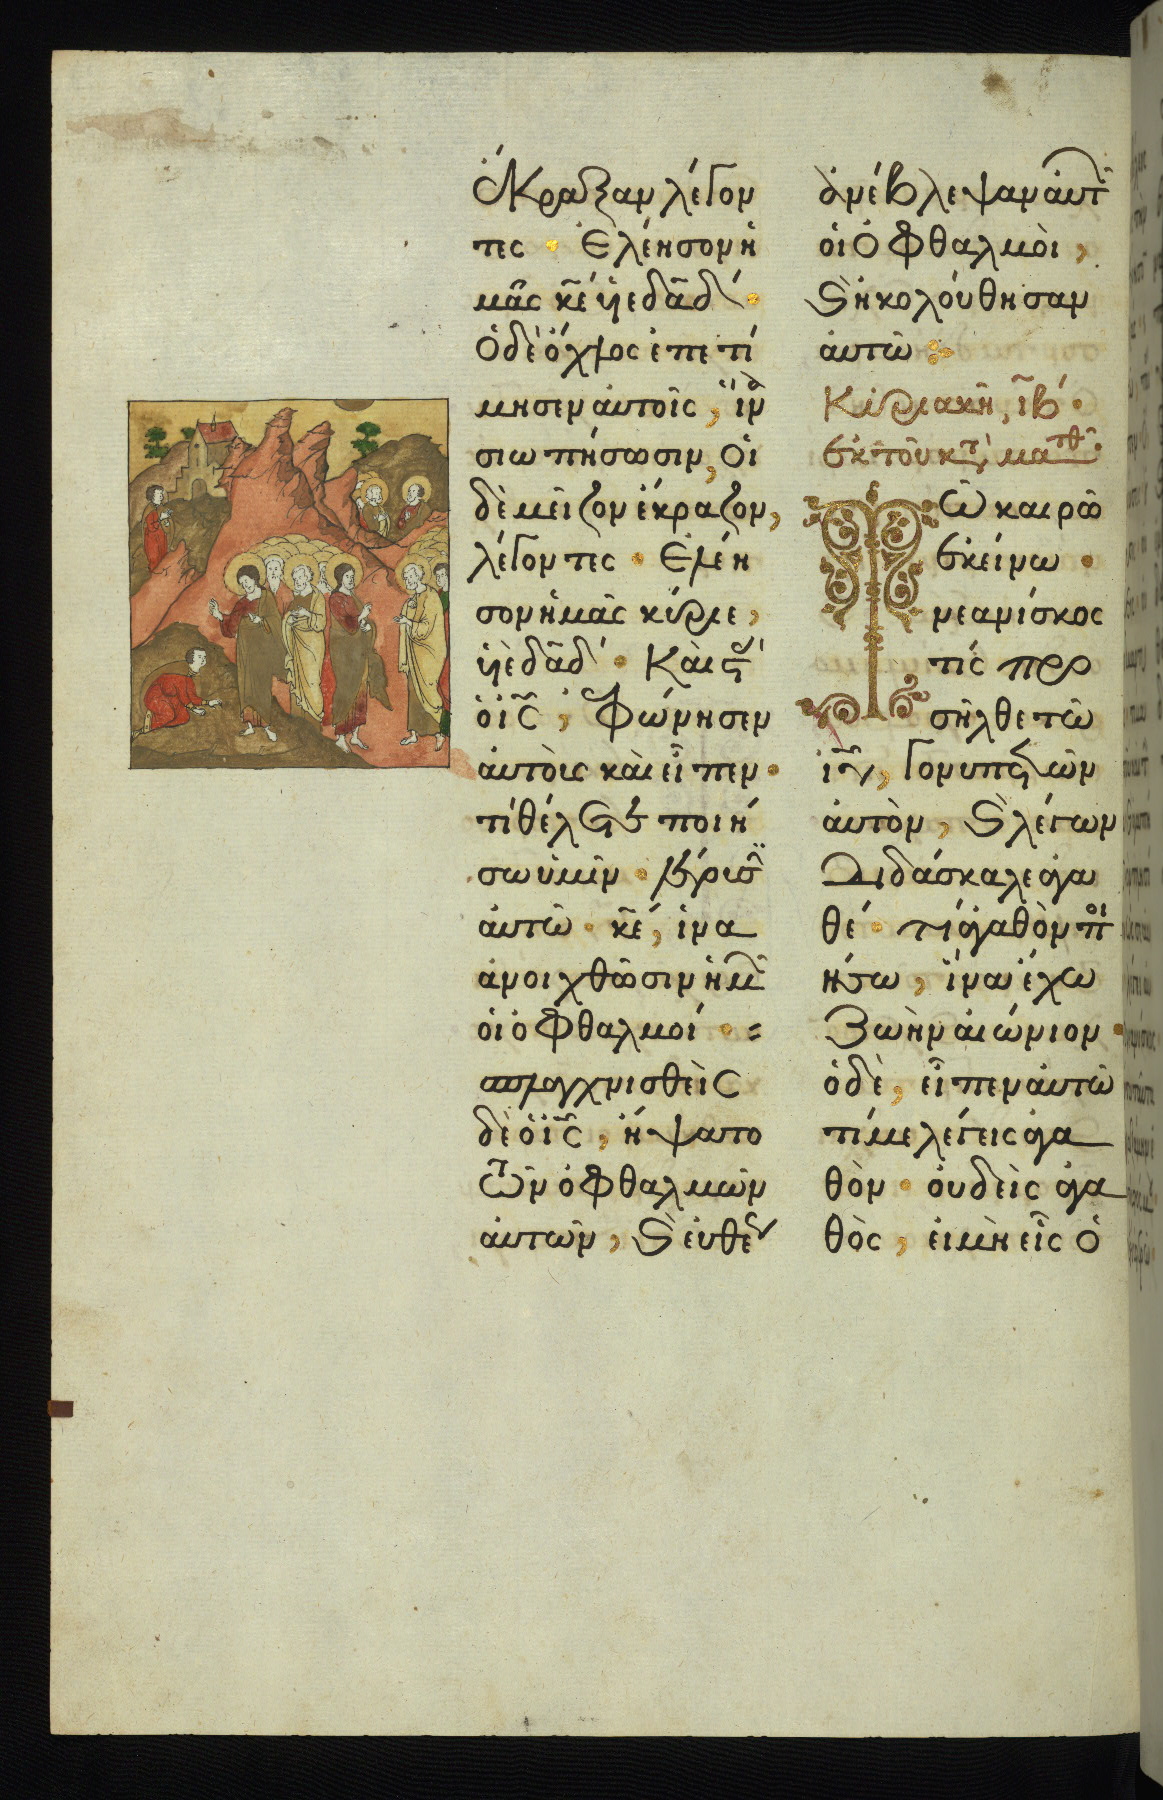 ἔκραξαν λέγον
τες · Ἐλέησον ἡ
μᾶς κ̅ε υἱὲ δα̅δ ·
Ὁ δὲ ὄχλος ἐπετί
μησεν αὐτοῖς, ἵν
σιωπήσωσιν, Οἱ
δὲ μεῖζον ἔκραζον,
λέγοντες · Ἐλέη
σον ἡμᾶς κύριε,
υἱὲ δα̅δ · Καὶ στ
ὁ ι̅ς, Φώνησεν
αὐτοὺς καὶ εἶπεν ·
τί θέλετε ποιή
σω ὑμῖν · λέγουσιν
αὐτῶ · κ̅ε, ἵνα
ἀνοιχθῶσιν ἡμ
οἱ ὀφθαλμοί ·
σπλαγχνισθεὶς
δὲ ὁ ι̅ς, ἥψατο
τῶν ὀφθαλμῶν
αὐτῶν, καὶ εὐθέ
ἀνέβλεψαν αὐτ
οἱ ὀφθαλμοὶ,
καὶ ἠκολούθησαν
αὐτῶ
Κυριακῆ, ιβ ·
ἐκ τοῦ κτ ματθ
Τῶ καιρῶ
ἐκείνω ·
νεανίσκος
τίς προ
σῆλθε τῶ
ι̅υ, γονυπετῶν
αὐτὸν, καὶ λέγων
Διδάσκαλε ἀγα
θέ · τί ἀγαθὸν ποι
ήσω, ἵνα ἔχω
Ζωὴν αἰώνιον ·
ὁ δὲ, εἶπεν αὐτῶ
τί με λέγεις ἀγα
θὸν · οὐδεὶς ἀγα
θὸς, εἰ μὴ εἷς ὁ